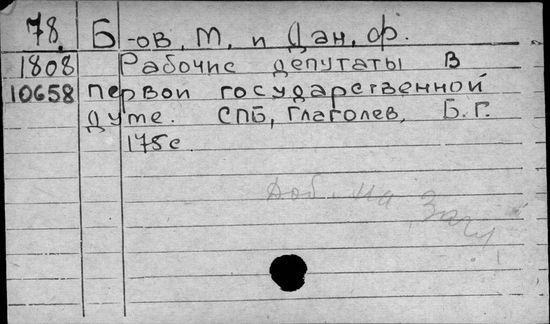 78. Б-ов, М. и Дан, Ф.
1808 Рабочие депутаты в
10658 первой государственной
думе. СПБ, Глаголев, Б.Г.
178 с.
Доб. на